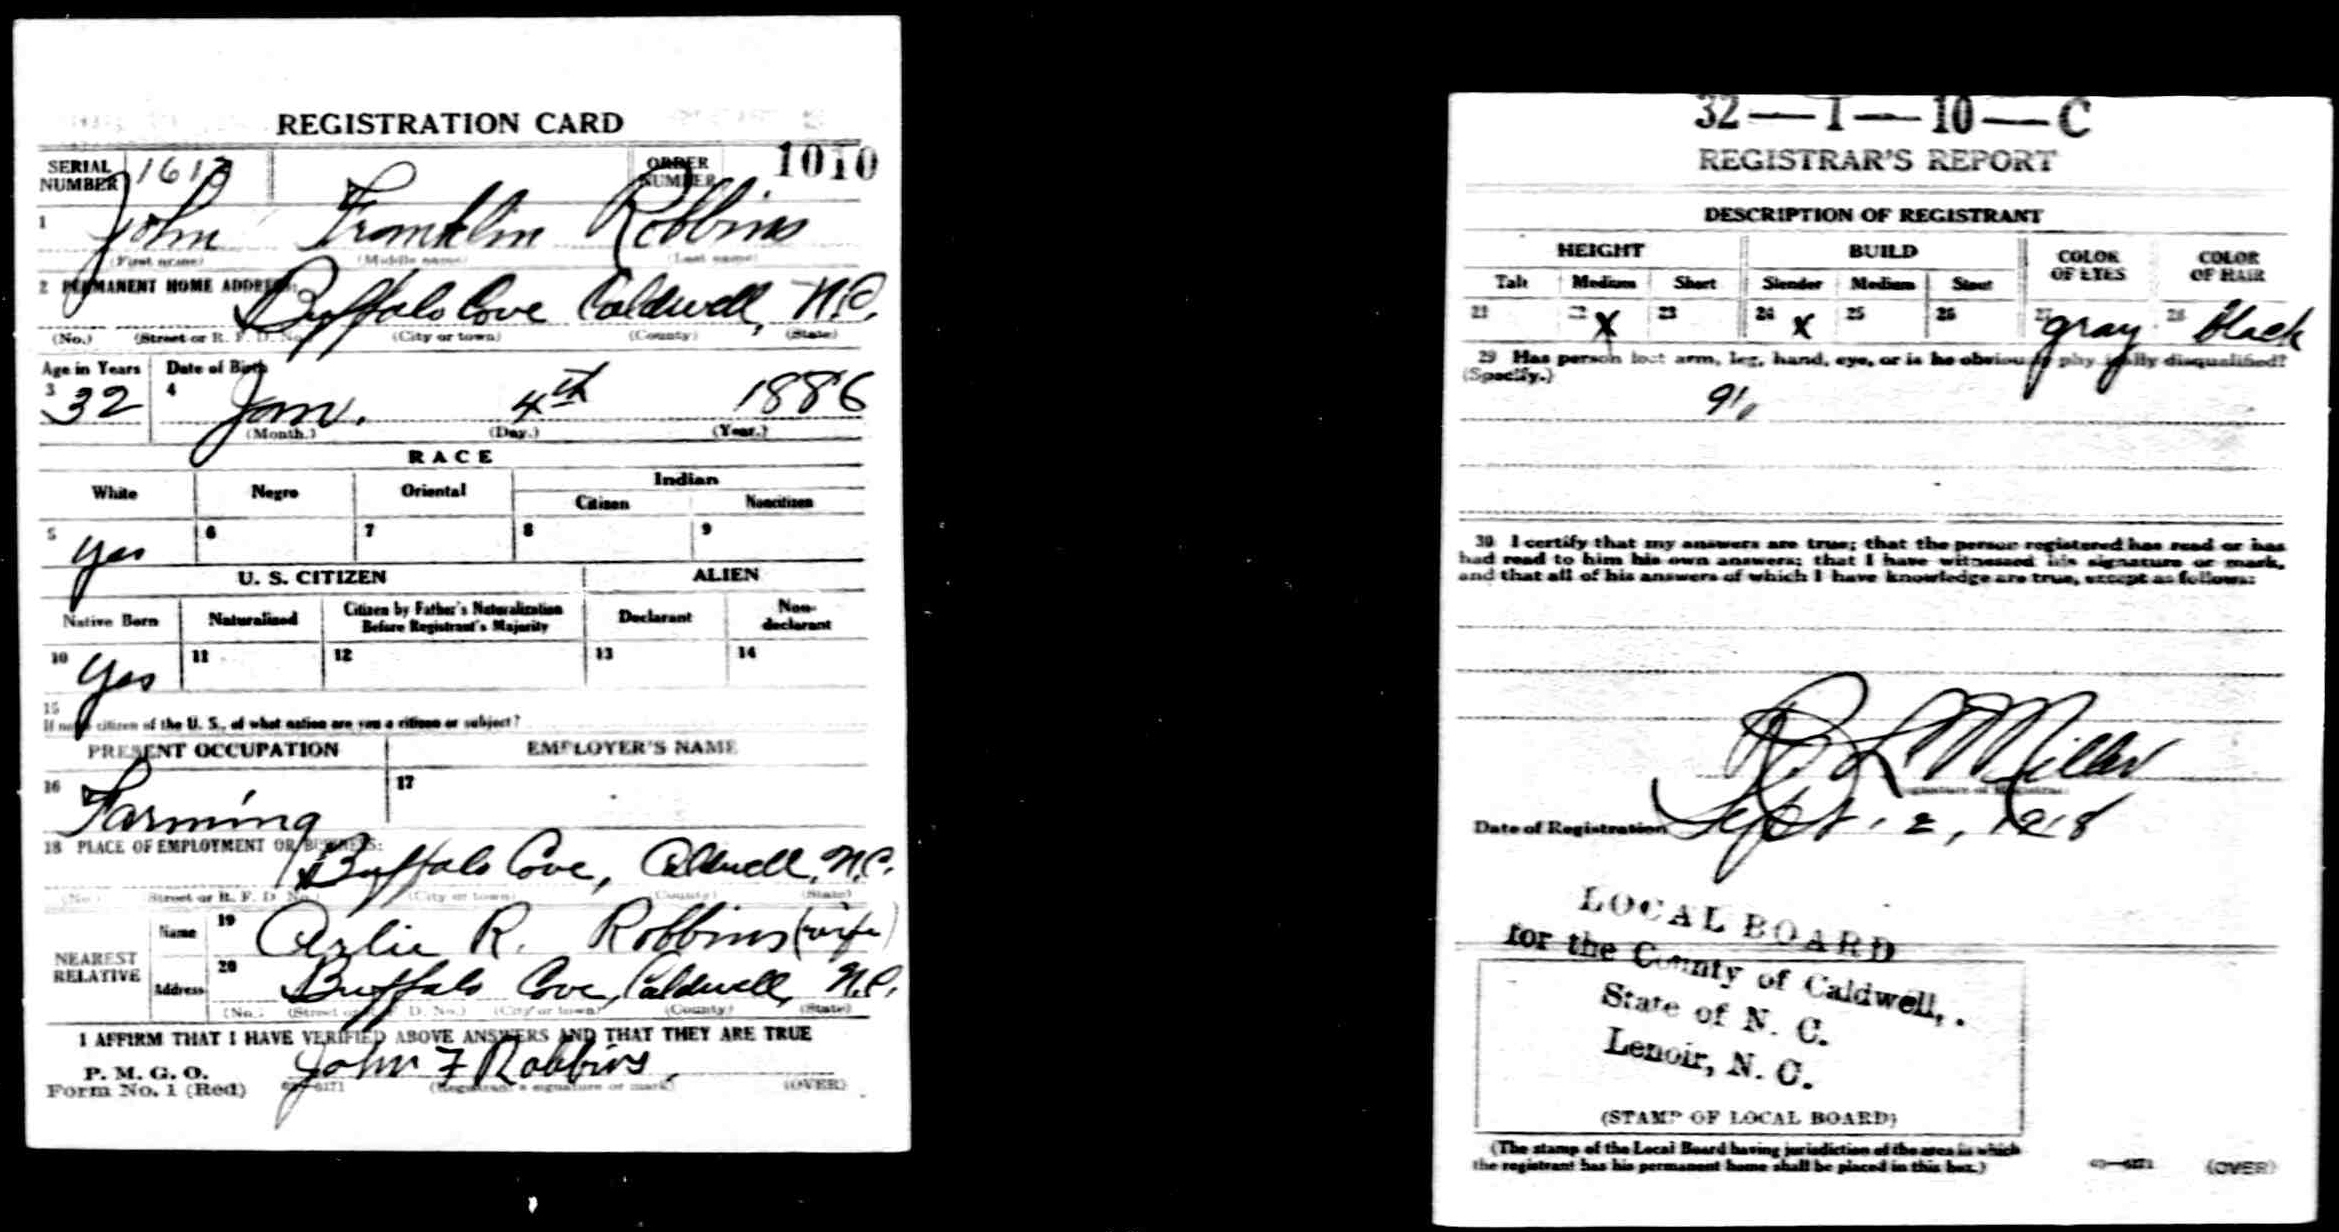 REGISTRATION CARD
SERIAL NUMBER 1613 ORDER NUMBER 1010
1 John Franklin Robbins
(First name) (Middle name) (Last name)
2 PERMANENT HOME ADDRESS: Buffalo Cove Caldwell, N.C.
(No.) (Street or R. F. D. No.) (City or town) (County) (State)
Age in Years Date of Birth
3 32 4 Jan. 4th 1886
(Month.) (Day.) (Year.)
RACE
White Negro Oriental Indian
Citizen Noncitizen
5 Yes 6 7 8 9
U. S. CITIZEN ALIEN
Native Born Naturalized Citizen by Father's Naturalization Before Registrant's Majority Declarant Non-declarant
10 Yes 11 12 13 14
15
If not a citizen of the U. S., of what nation are you a citizen or subject?
PRESENT OCCUPATION EMPLOYER'S NAME
16 Farming 17
18 PLACE OF EMPLOYMENT OR BUSINESS:
Buffalo Cove, Caldwell, N.C.
(No.) (Street or R. F. D. No.) (City or town) (County) (State)
NEAREST RELATIVE Name 19 Arlie R. Robbins (wife)
Address 20 Buffalo Cove, Caldwell, N.C.
(No.) (Street or R. F. D. No.) (City or town) (County) (State)
I AFFIRM THAT I HAVE VERIFIED ABOVE ANSWERS AND THAT THEY ARE TRUE
P. M. G. O.
Form No. 1 (Red) John F Robbins.
(Registrant's signature or mark) (OVER)
32—1—10—C
REGISTRAR'S REPORT
DESCRIPTION OF REGISTRANT
HEIGHT BUILD COLOR OF EYES COLOR OF HAIR
Tall Medium Short Slender Medium Stout
21 22 X 23 24 X 25 26 27 gray 28 black
29 Has person lost arm, leg, hand, eye, or is he obviously physically disqualified?
(Specify.)
30 I certify that my answers are true; that the person registered has read or has
had read to him his own answers; that I have witnessed his signature or mark,
and that all of his answers of which I have knowledge are true, except as follows:
R L Miller
(Signature of Registrar)
Date of Registration Sept. 2, 1918
LOCAL BOARD
for the County of Caldwell,
State of N. C.
Lenoir, N. C.
(STAMP OF LOCAL BOARD)
(The stamp of the Local Board having jurisdiction of the area in which
the registrant has his permanent home shall be placed in this box.)
(OVER)